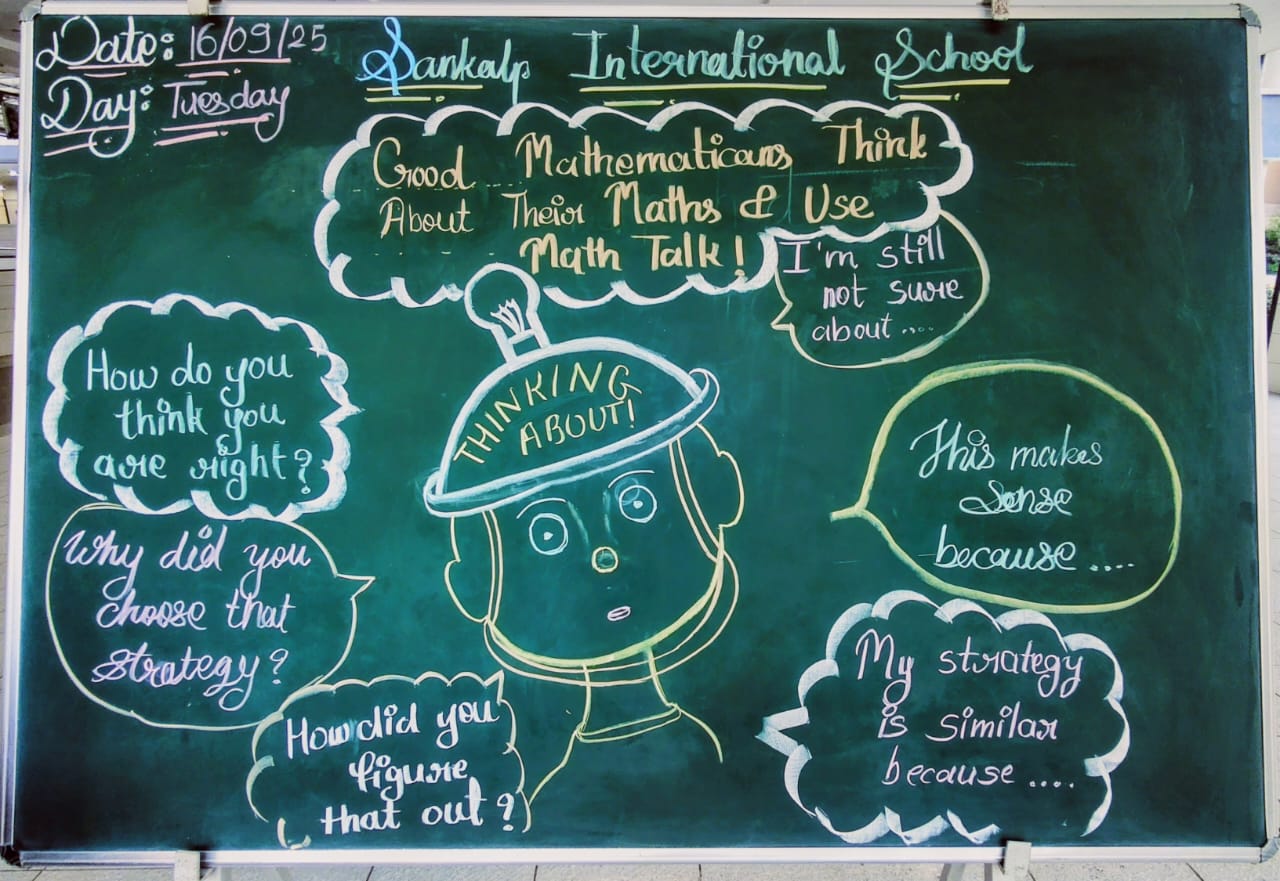 Date: 16/09/25
Day: Tuesday
Sankalp International School
Good Mathematicans Think
About Their Maths & Use
Math Talk!
I'm still
not sure
about....
THINKING
ABOUT!
How do you
think you
are right?
This makes
Sense
because ....
Why did you
choose that
strategy?
My strategy
is similar
because ....
How did you
figure
that out?